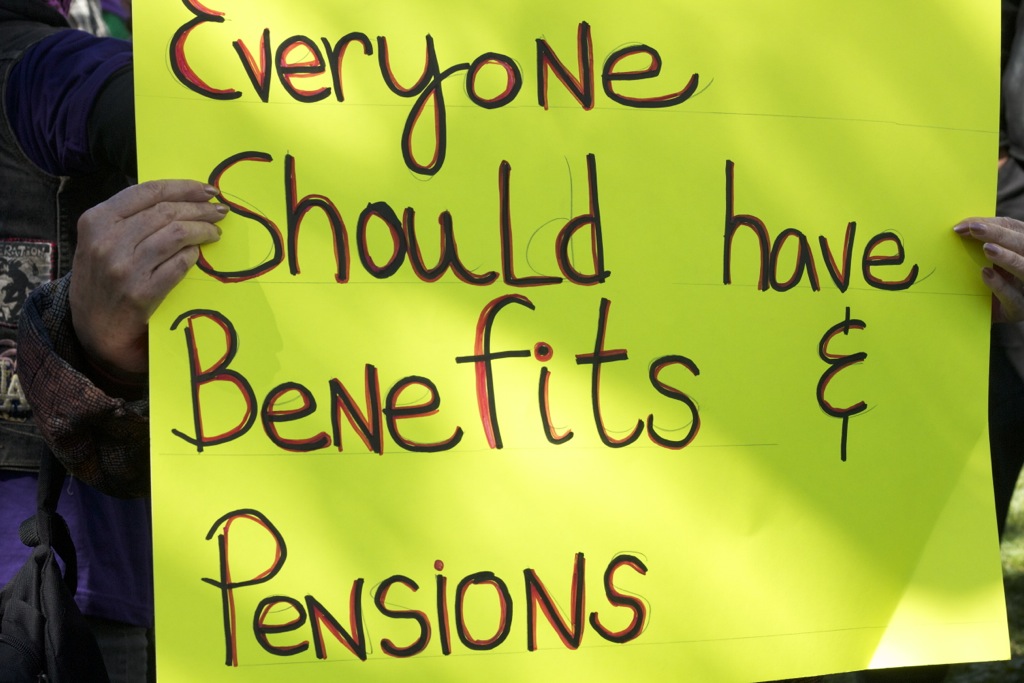 Everyone
Should have
Benefits &
Pensions